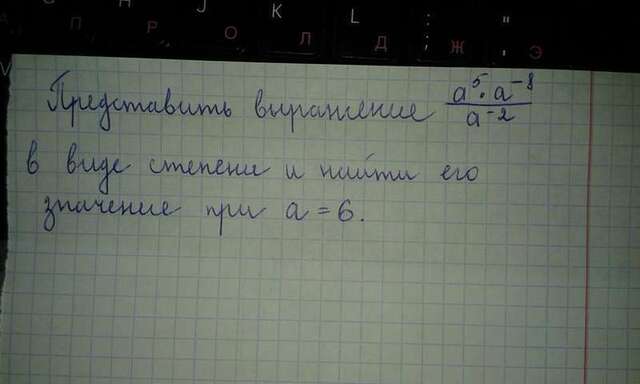 J K L : "
П Р О Л Д ; Ж ' Э
Представить выражение a⁵·a⁻⁸/a⁻²
в виде степени и найти его
значение при a = 6.